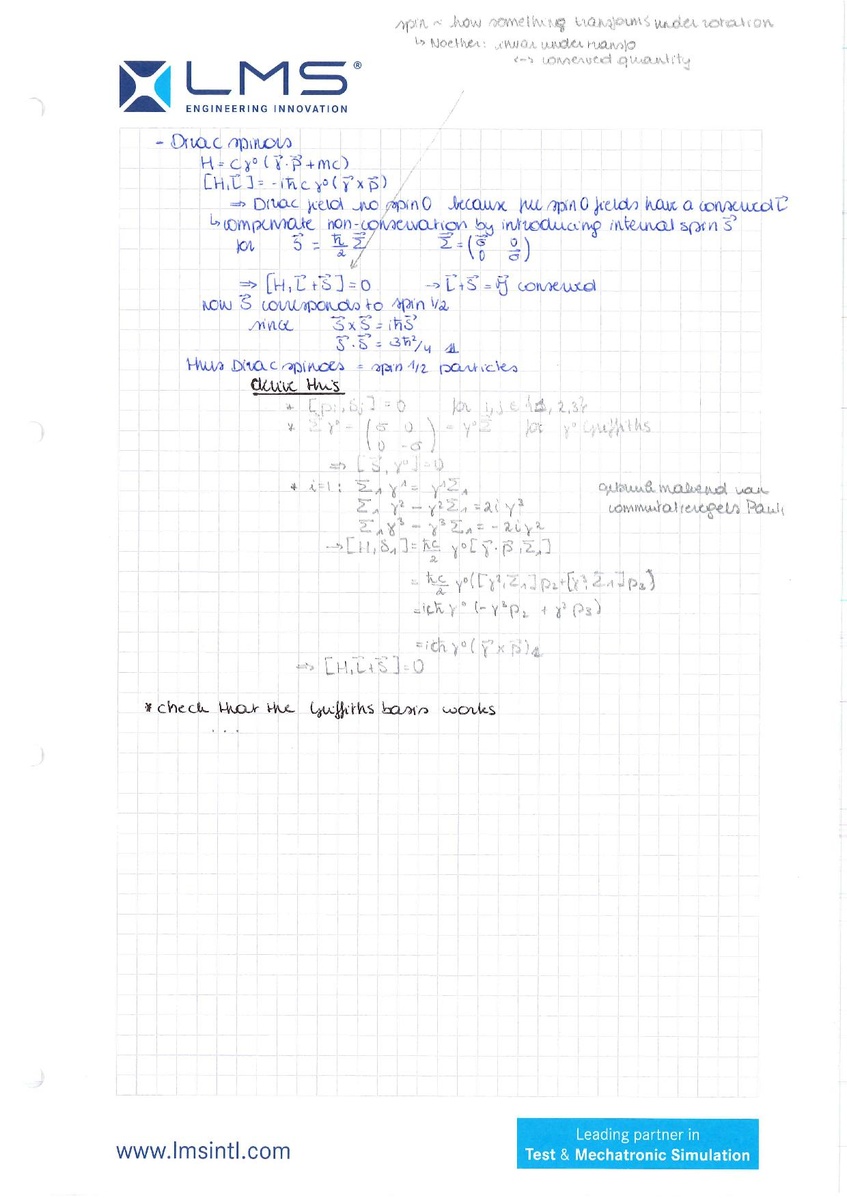 spin ~ how something transforms under rotation
↳ Noether: invar under transfo
↔ conserved quantity
LMS®
ENGINEERING INNOVATION
- Dirac spinors
H = cγ⁰(γ⃗·p⃗ + mc)
[H, L⃗] = -iħc γ⁰(γ⃗ × p⃗)
⇒ Dirac field no spin 0 because free spin 0 fields have a conserved L⃗
↳ compensate non-conservation by introducing internal spin S⃗
for S⃗ = ħ/2 Σ⃗ Σ⃗ = (σ⃗ 0 0 σ⃗)
⇒ [H, L⃗ + S⃗] = 0 → L⃗ + S⃗ = J⃗ conserved
now S⃗ corresponds to spin 1/2
since S⃗ × S⃗ = iħS⃗
S⃗ · S⃗ = 3ħ²/4 𝟙
Thus Dirac spinors = spin 1/2 particles
derive this
* [pᵢ, Sⱼ] = 0 for i, j ∈ {1, 2, 3}
* Σ⃗ γ⁰ = (σ 0 0 -σ) = γ⁰Σ⃗ for γ⁰ Griffiths
⇒ [S⃗, γ⁰] = 0
* i=1: Σ₁ γ¹ = γ¹Σ₁
gebruik makend van
Σ₁ γ² - γ²Σ₁ = 2i γ³
commutatieregels Pauli
Σ₁γ³ - γ³Σ₁ = -2iγ²
→ [H, S₁] = ħc/2 γ⁰[γ⃗·p⃗, Σ₁]
= ħc/2 γ⁰([γ², Σ₁]p₂ + [γ³, Σ₁]p₃)
= icħ γ⁰(-γ³p₂ + γ²p₃)
= icħ γ⁰(γ⃗ × p⃗)₁
⇒ [H, L⃗ + S⃗] = 0
* check that the Griffiths basis works
...
www.lmsintl.com
Leading partner in
Test & Mechatronic Simulation